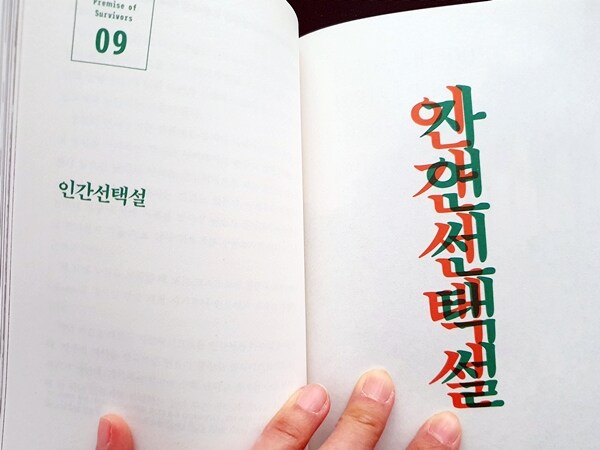 Premise of
Survivors
09
인간선택설
인간선택설
자연선택설